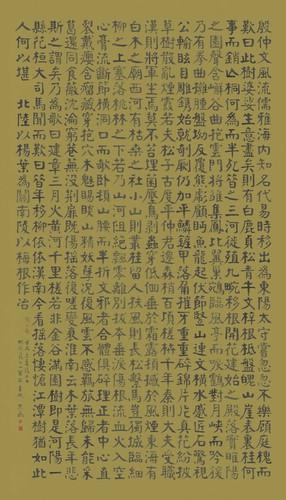 殷仲文風流儒雅海内知名代易時移出為東陽太守嘗忽忽不樂顧庭槐而
歎曰此樹婆娑生意盡矣則有白鹿貞松青牛文梓根柢盤魄山崖表裏桂何
事而銷亡桐何為而半死昔之三河徙殖九畹移根開花建始之殿落實睢陽
之園聲含嶰谷曲抱雲門將雛集鳳比翼巢鴛臨風亭而唳鶴對月峽而吟猿
乃有拳曲擁腫盤坳反覆熊彪顧盼魚龍起伏節豎山連文橫水蹙匠石驚視
公輸眩目雕鐫始就剞劂仍加平鱗鏟甲落角摧牙重重碎錦片片真花紛披
草樹散亂煙霞若夫松子古度平仲君遷森梢百頃槎枿千年秦則大夫受職
漢則將軍坐焉莫不苔埋菌壓鳥剝蟲穿低垂於霜露撼頓於風煙東海有
白木之廟西河有枯桑之社小山則叢桂留人扶風則長松繫馬豈獨城臨細
柳之上塞落桃林之下若乃山河阻絕飄零離別拔本垂淚傷根流血火入空
心膏流斷節橫洞口而欹卧頓山腰而半折文邪者合體俱碎理正者中心直
裂戴癭含瘤藏穿抱穴木魅睗睒山精妖孽況復風雲不感羈旅無歸未能采
葛還同食薇沉淪窮巷蕪没荊扉既傷搖落復嗟變衰淮南云木葉落長年悲
斯之謂矣乃為歌曰建章三月火黃河千里槎若非金谷滿園樹即是河陽一
縣花桓大司馬聞而歎曰昔年移柳依依漢南今看搖落悽愴江潭樹猶如此
人何以堪 北陸以楊葉為關南陵以梅根作冶